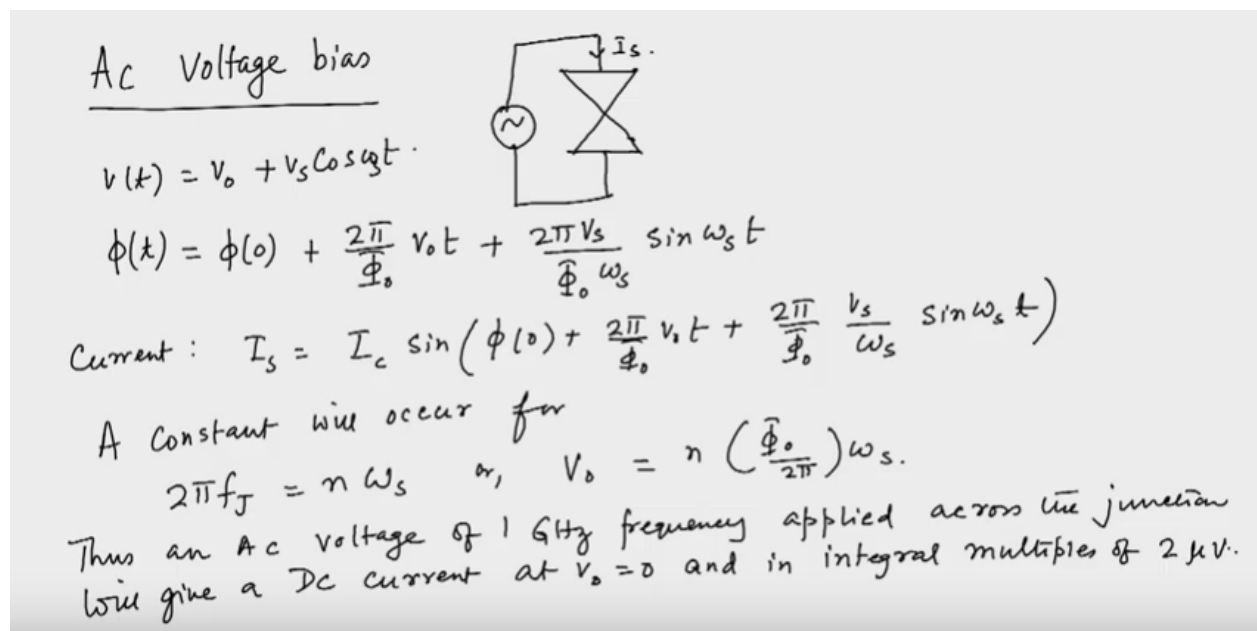 Ac Voltage bias
Is.
~
v(t) = V₀ + Vs Cos ωst.
ϕ(t) = ϕ(0) + 2π/Φ₀ V₀t + 2πVs/Φ₀ωs sin ωst
Current : Is = Ic sin(ϕ(0) + 2π/Φ₀ V₀t + 2π/Φ₀ Vs/ωs sin ωst)
A Constant will occur for
2πfJ = nωs or, V₀ = n(Φ₀/2π)ωs.
Thus an Ac voltage of 1 GHz frequency applied across the junction
will give a DC current at V₀ = 0 and in integral multiples of 2 μV.